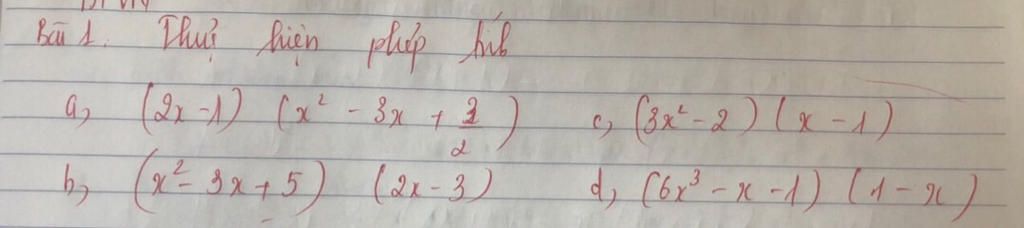 Bài 1. Thực hiện phép tính
a, (2x - 1) (x² - 3x + 3/2) c, (3x² - 2) (x - 1)
b, (x² - 3x + 5) (2x - 3) d, (6x³ - x - 1) (1 - x)